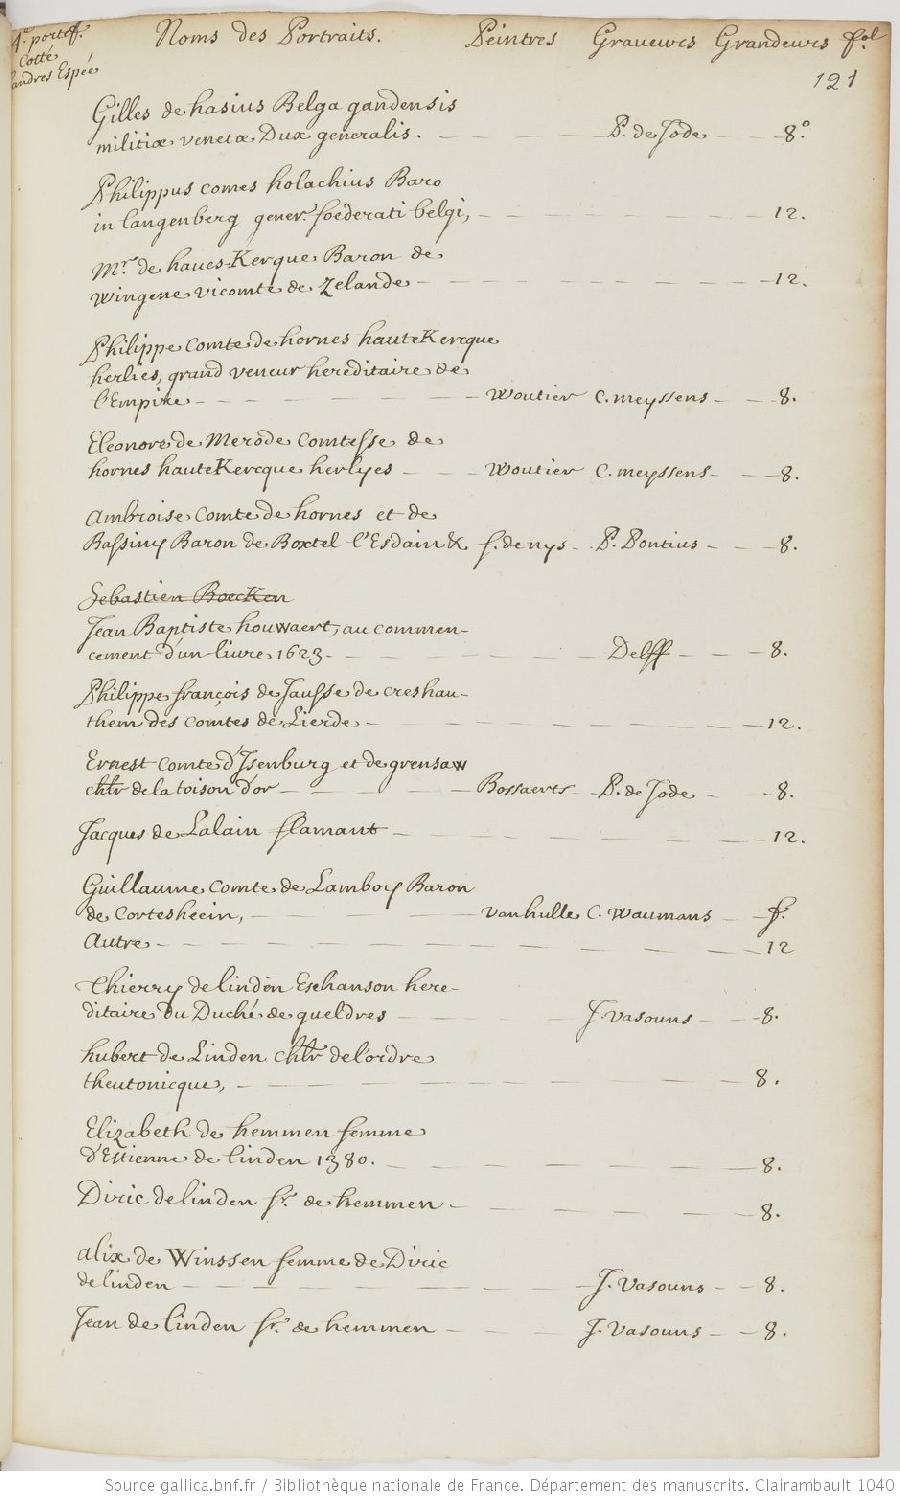 4e. portef. Noms des Portraits. Peintres Graveurs Grandeurs fol
Cotté
andres Espée
121
Gilles de hasius Belga gandensis
militiæ venetæ Dux generalis. P. de Jode 8°.
Philippus comes holachius Baro
in langenberg gener. foederati belgi, 12.
Mr. de haues-Kerque Baron de
Wingene vicomte de Zelande 12.
Philippe comte de hornes hauteKercque
herlies, grand veneur hereditaire de
l'Empire Woutier C. meyssens 8.
Eleonore de Merode Comtesse de
hornes hauteKercque herlyes Woutier C. meyssens 8.
Ambroise Comte de hornes et de
Bassiny Baron de Boxtel l'Esdain & f. denys P. Pontius 8.
Sebastien BoecKen
Jean Baptiste houwaert, au commen-
cement d'un livre 1623. Delff 8.
Philippe françois de Jausse de creshau-
them des comtes de Lierde, 12.
Ernest comte d'Isenburg et de grensaw
chlr de la toison d'or Bossaerts P. de Jode 8.
Jacques de Lalain flamant 12.
Guillaume Comte de Lamboy Baron
de Cortesheein, vanhulle C. Waumans f.
Autre 12
Thierry de linden Eschanson here-
ditaire du Duché de gueldres J. vasouns 8.
hubert de Linden chlr de l'ordre
theutonicque, 8.
Elizabeth de hemmen femme
d'Estienne de linden 1380. 8.
Diric de linden sr. de hemmen 8.
Alix de Winssen femme de Diric
de linden J. Vasouns 8.
Jean de linden sr. de hemmen J. Vasouns 8.
Source gallica.bnf.fr / Bibliothèque nationale de France. Département des manuscrits. Clairambault 1040